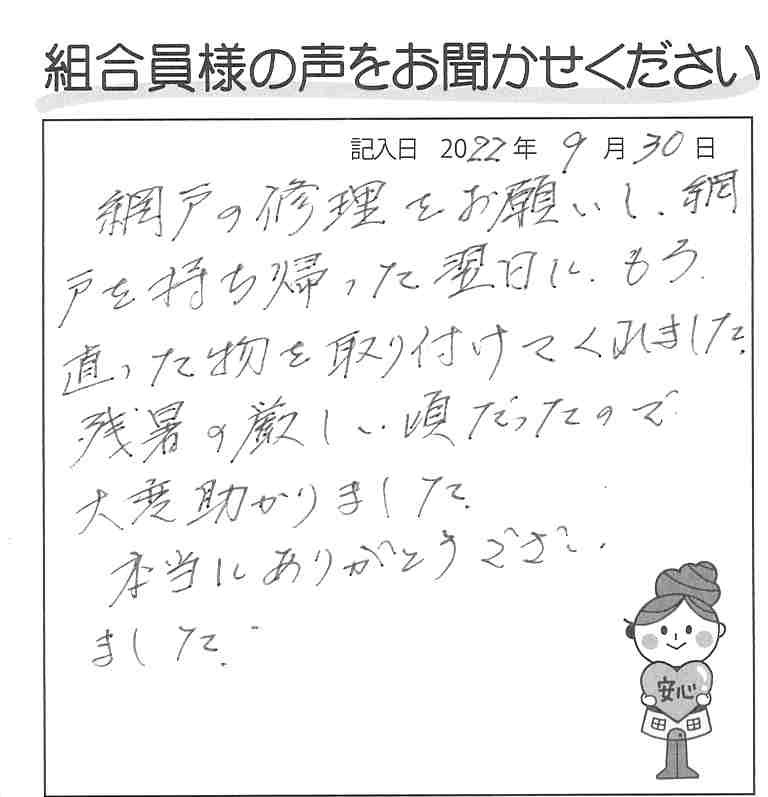 組合員様の声をお聞かせください
記入日 2022年 9月30日
網戸の修理をお願いし、網
戸を持ち帰った翌日に、もう
直った物を取り付けてくれました。
残暑の厳しい頃だったので
大変助かりました。
本当にありがとうござい
ました。
安心